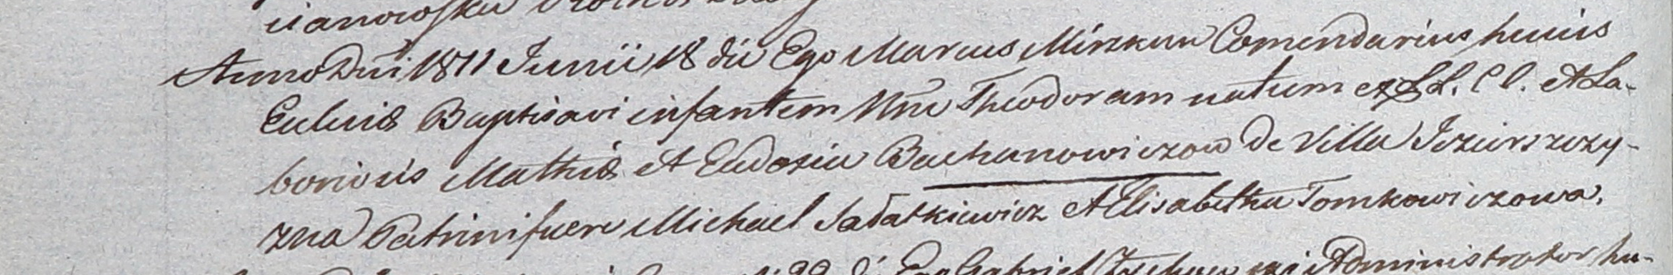 Anno Dni 1811 Junii 18 die Ego Marcus Mirzkun Comendarius huius
Eccluiæ Baptisavi infantem Nne Theodoram natum ex LL. CC. et La-
boriosis Mathiæ et Eudoxia Bachanowiczow de Villa
zna Patrini fuere Michael Sałatkiewicz et Elisabetha Tomkowiczowa.
Ego Gabriel Administrator hu-